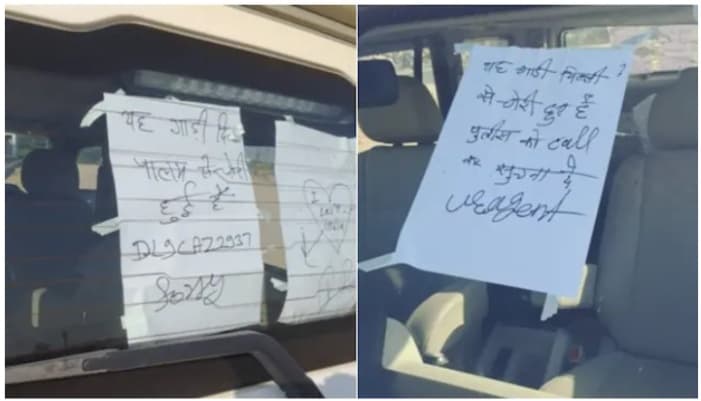 यह गाडी
पालम से चोरी
हुई है
DL9CAZ2937
Sorry
I
LOVE
INDIA
यह गाडी दिल्ली
से चोरी हुइ है
पुलीस को call
कर सुचना दे
uragent